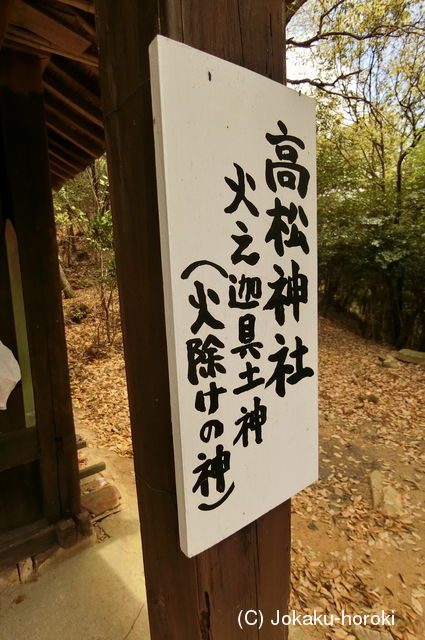 高松神社
火之迦具土神
(火除けの神)
(C) Jokaku-horoki